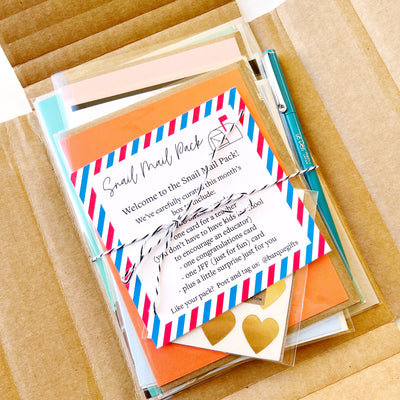 Snail Mail Pack
Welcome to the Snail Mail Pack!
We've carefully curated this month's
box to include:
one card for a teacher
(you don't have to have kids in school
to encourage an educator)
- one congratulations card
- one JFF (just for fun) card
- plus a little surprise just for you
Like your pack? Post and tag us: @barquegifts